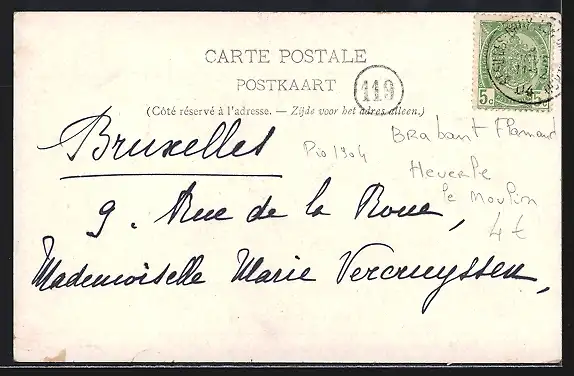 CARTE POSTALE
POSTKAART
119
(Côté réservé à l'adresse. — Zijde voor het adres alleen.)
5c
04
Bruxelles
Brabant Flamand
Pio 1904
Heverlé
le moulin
4 €
9. Rue de la Roue,
Mademoiselle Marie Vercruyssen,